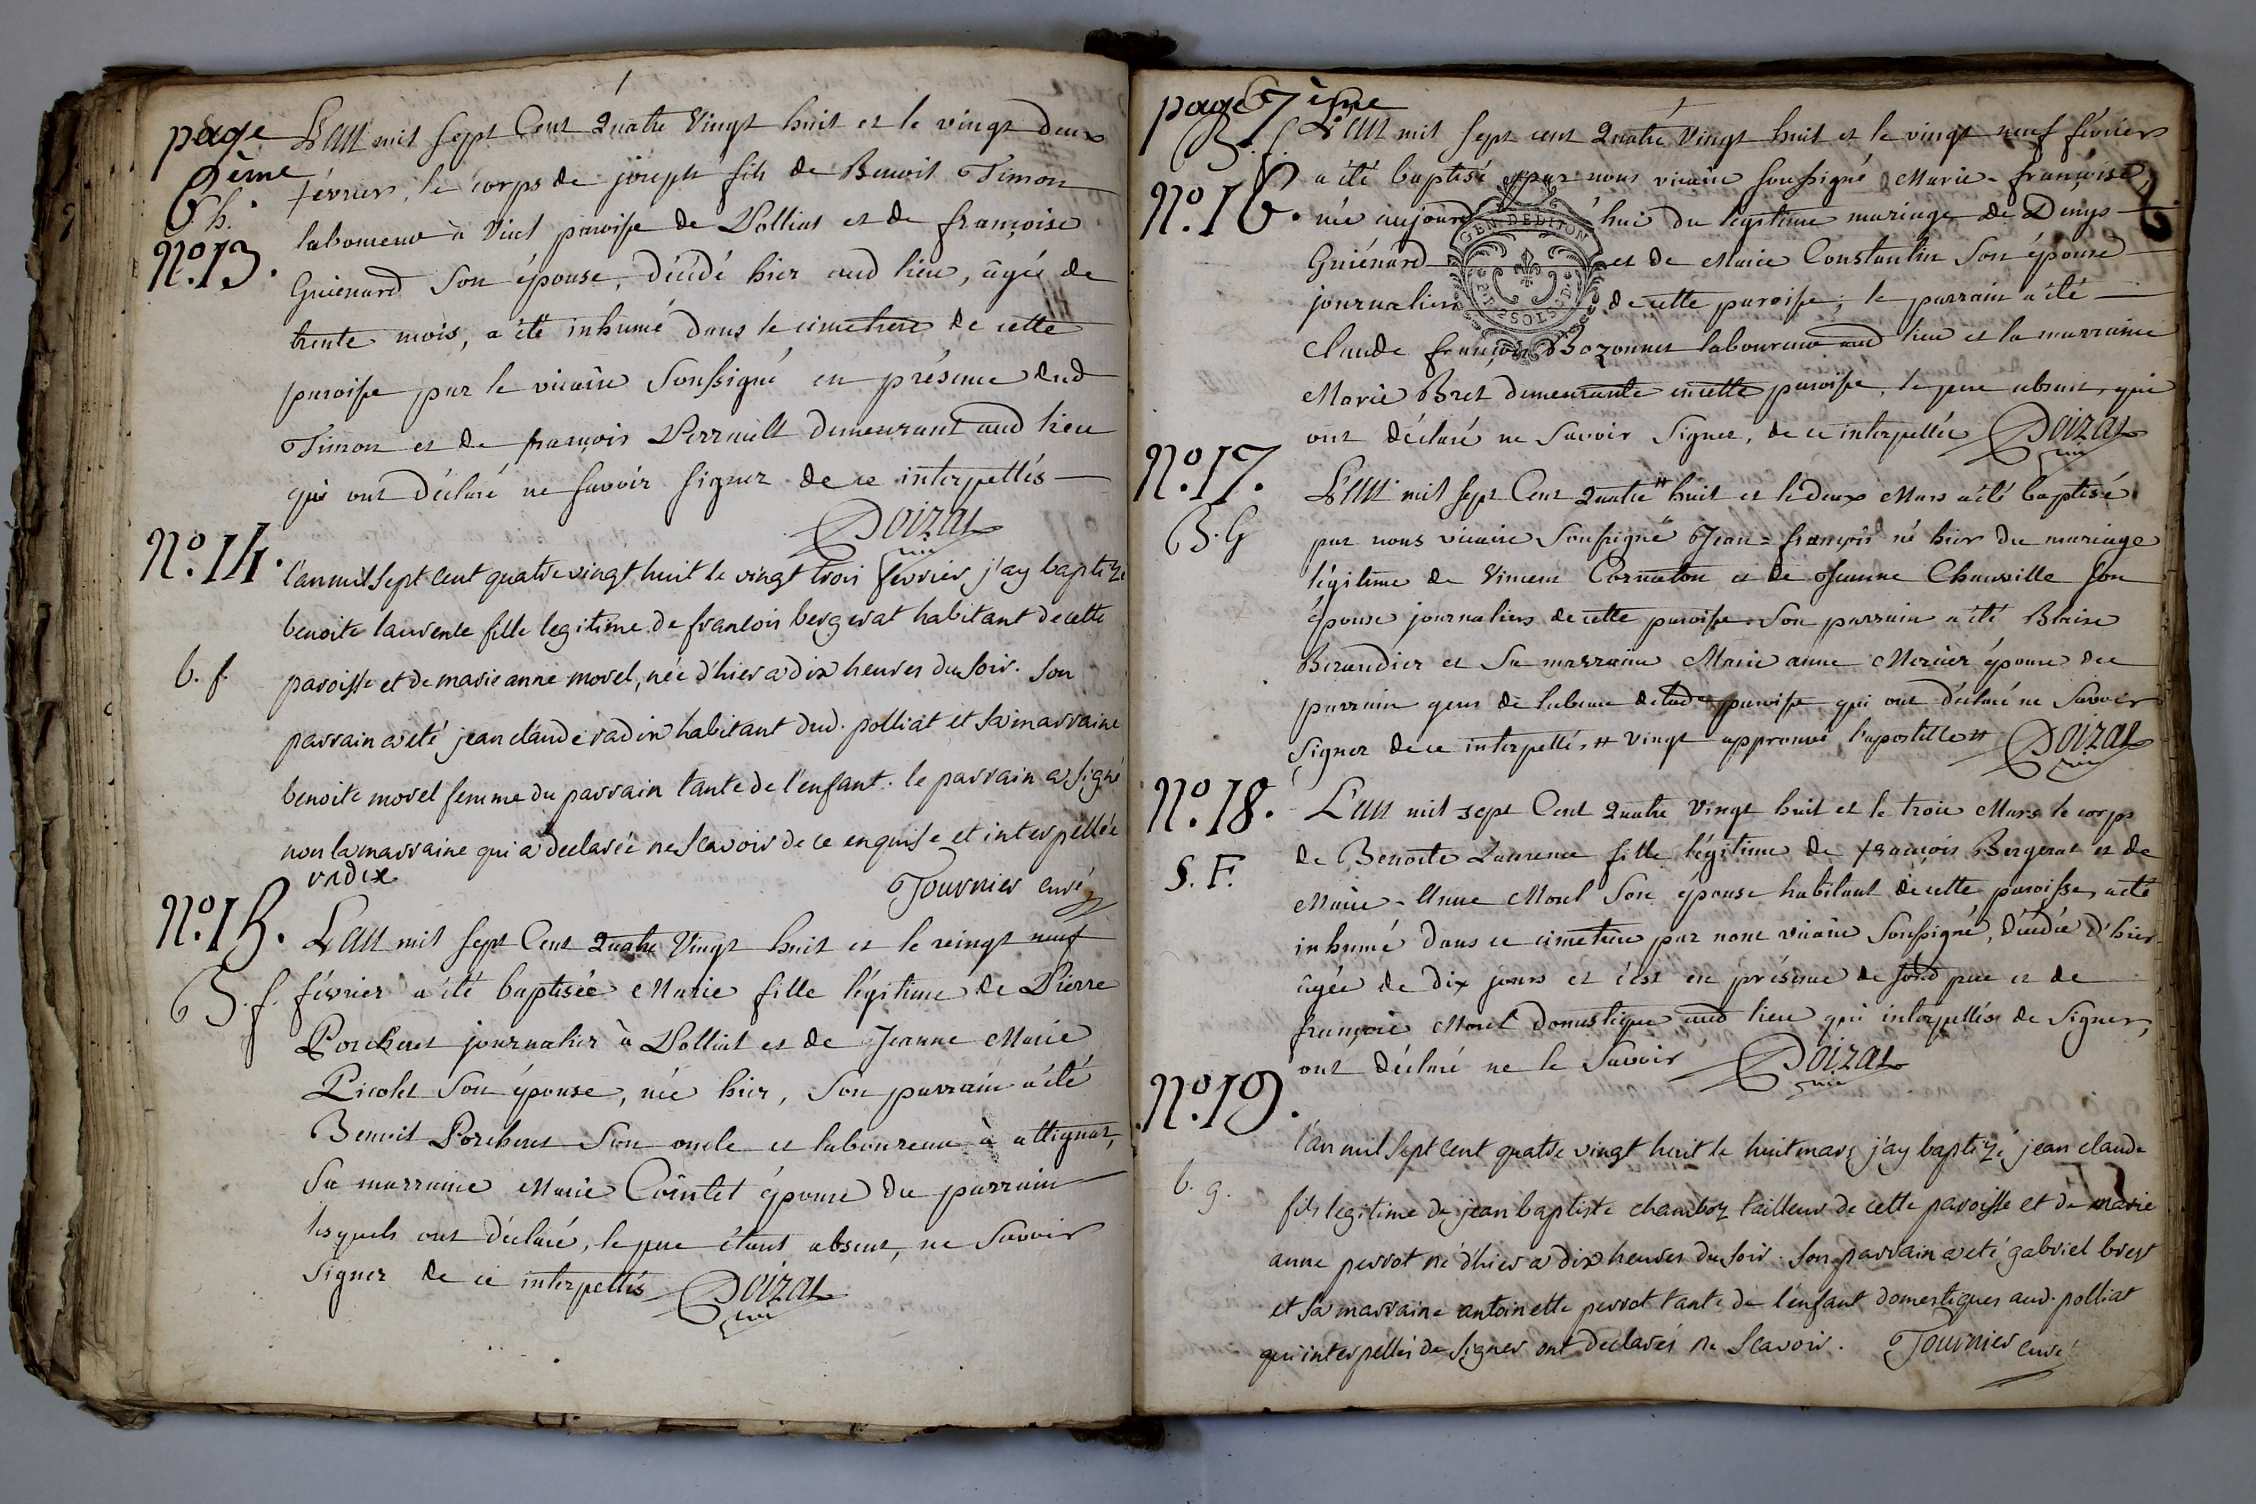 page
6ème
S h.
N.º 13.
L'an mil sept Cent Quatre Vingt huit et le vingt deux
février, le corps de joseph fils de Benoit Timon
laboureur à Vial paroisse de Polliat et de françoise
Guiénard Son épouse, décédé hier aud lieu, âgée de
trente mois, a été inhumé dans le cimetiere de cette
paroisse par le vicaire Soussigné en présence dud
Timon et de françois Perrault demeurant aud lieu
qui ont déclaré ne savoir signer de ce interpellés
Doizat
vic
N.º 14.
b. f.
l'an mil sept cent quatre vingt huit le vingt trois fevrier j'ay baptizé
benoite laurence fille legitime de francois bergerat habitant de cette
paroisse et de marie anne morel, née d'hier a dix heures du soir. son
parrain a eté jean claude radix habitant dud. polliat et sa marraine
benoite morel femme du parrain tante de l'enfant. le parrain a signé
non la marraine qui a declarée ne scavoir de ce enquise et interpellée
radix
Tournier curé
N.º 15.
B. f.
L'an mil sept Cent Quatre Vingt huit et le vingt neuf
février a été baptisée Marie fille légitime de Pierre
Porcheret journalier à Polliat et de Jeanne Marie
Picolet Son épouse, née hier, Son parrain a été
Benoit Porcheret Son oncle et laboureur à attignat,
Sa marraine Marie Cointet épouse du parrain
lesquels ont déclaré, le père étant absent, ne Savoir
Signer de ce interpellés Doizat
vic
page 7ème
B. f.
N.º 16.
L'an mil sept cent Quatre Vingt huit et le vingt neuf février
a été baptisé par nous vicaire soussigné Marie-françoise,
née aujourd'hui du légitime mariage de Denys
GEN. DE DIJON
Guiénard et de Marie Constantin Son épouse
journaliers de cette paroisse; le parrain a été
Claude françois Bozonnet laboureur aud lieu et la marraine
Marie Bret demeurante en cette paroisse, le père absent, qui
ont déclaré ne Savoir Signer, de ce interpellés Doizat
vic
N.º 17.
B. G
L'an mil sept Cent Quatre # huit et le deux Mars a été baptisé
par nous vicaire Soussigné Jean-françois né hier du mariage
légitime de Vincent Cornaton et de Jeanne Chanville son
épouse journaliers de cette paroisse. Son parrain a été Blaise
Beraudier et Sa marraine Marie anne Mercier épouse du
parrain gens de labeur de lad paroisse qui ont déclaré ne Savoir
Signer de ce interpellés # vingt approuvé l'apostille # Doizat
vic
N.º 18.
S. F.
L'an mil sept Cent Quatre Vingt huit et le trois Mars le corps
de Benoite Laurence fille légitime de françois Bergerat et de
Marie-Anne Morel Son épouse habitant de cette paroisse, a été
inhumé dans ce cimetiere par nous vicaire Soussigné, décédée d'hier
âgée de dix jours et c'est en présence de sond père et de
françois Morel domestique aud lieu qui interpellés de Signer,
ont déclaré ne le Savoir Doizat
vic
N.º 19.
b. g.
l'an mil sept cent quatre vingt huit le huit mars j'ay baptizé jean claude
fils legitime de jean baptiste chamboz tailleur de cette paroisse et de marie
anne perrot né d'hier a dix heures du soir. son parrain a eté gabriel bret
et sa marraine antoinette perrot tante de l'enfant domestiques aud. polliat
qui interpellés de signer ont declarés ne scavoir. Tournier curé